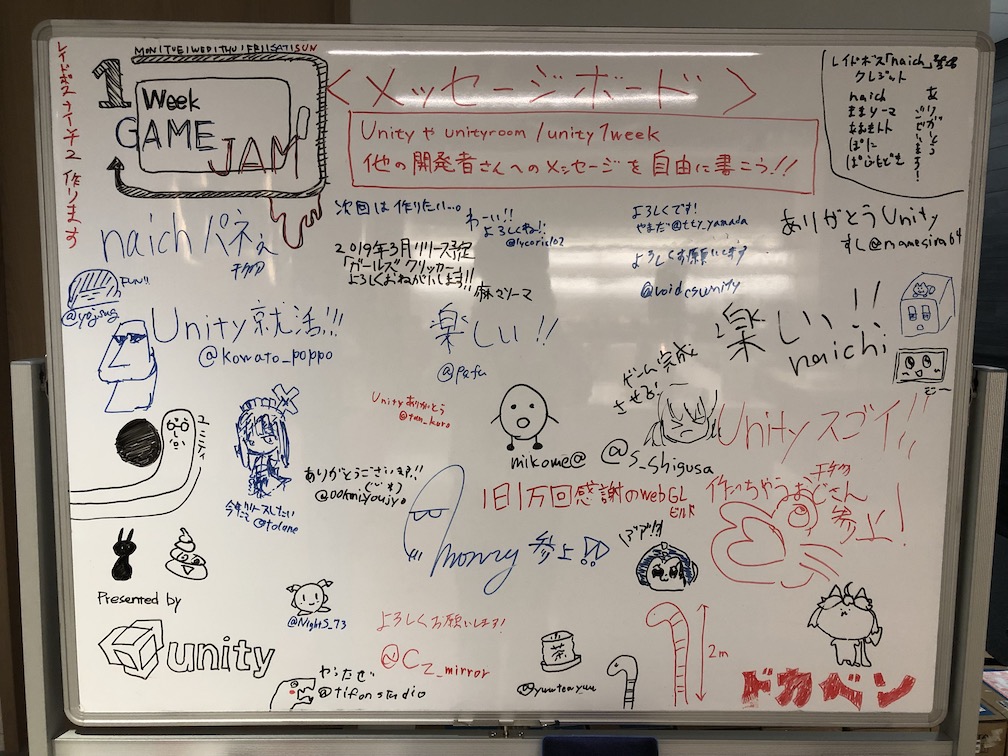 MON|TUE|WED|THU|FRI|SAT|SUN
1
Week
GAME
JAM
レイドボスナイチ2作ります
<メッセージボード>
Unityやunityroom/unity1week
他の開発者さんへのメッセージを自由に書こう!!
レイドボス「naich」
クレジット
naich
ままりーマ
ぽに
ありがとうございます!
naichパネぇ
次回は作りたい…。
わーい!!
よろしくね!!
@lycoris102
2019年3月リリース予定
「ガールズクリッカー」
よろしくおねがいします!!
麻マリーマ
よろしくです!
やまだ@tty_yamada
よろしくお願いします
@voidcsunity
ありがとうUnity
すし@manesiro64
FUN!!
@yojung
Unity就活!!!
@komato_poppo
楽しい!!
@pafu
楽しい!!
naichi
ユニティ
Unityありがとう
@tam_kuro
ゲーム完成
させるぞ
@S_Shigusa
mikome@
Unityスゴイ!!
今年リリースしたい
@tolane
ありがとうございます!!
@ookmiyoujyo
1日1万回感謝のWebGL
ビルド
作っちゃうおじさん
参上!
monry参上!!
Presented by
unity
@NightS_73
よろしくお願いします!
@Cz_mirror
やったぜ
@tifonstudio
茶
@yuuteayuu
2m
ドカベン